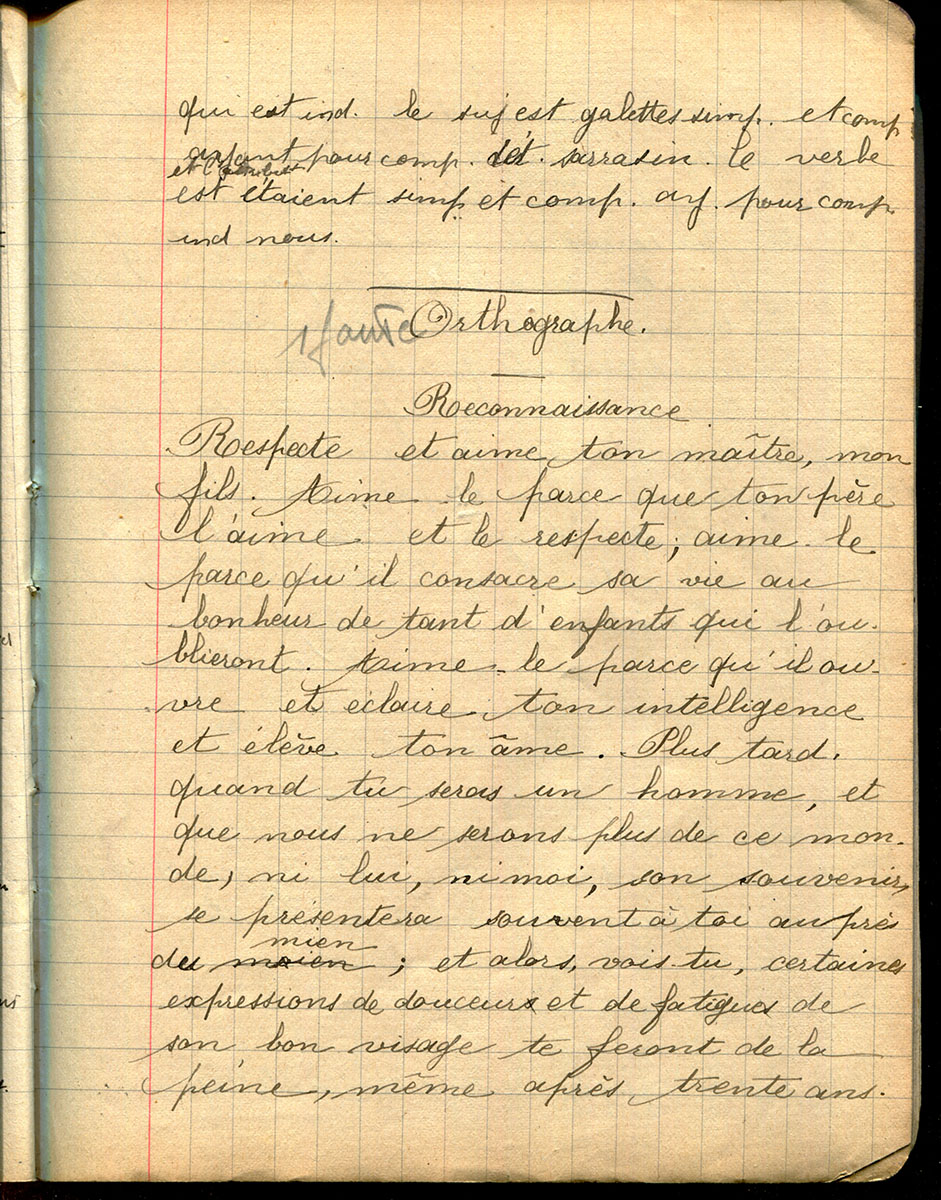 qui est ind. le suj est galettes simp. et comp
ayant pour comp. dét. sarrasin. le verbe
et l'attribut
est étaient simp. et comp. ay. pour comp.
ind nous.
1 faute Orthographe.
Reconnaissance
Respecte et aime ton maître, mon
fils. Aime - le parce que ton père
l'aime et le respecte; aime - le
parce qu'il consacre sa vie au
bonheur de tant d'enfants qui l'ou-
blieront. Aime - le parce qu'il ou-
vre et éclaire ton intelligence
et élève ton âme. Plus tard,
quand tu seras un homme, et
que nous ne serons plus de ce mon-
de, ni lui, ni moi, son souvenir,
se présentera souvent à toi au près
mien
du moien ; et alors, vois-tu, certaines
expressions de douceur et de fatigues de
son bon visage te feront de la
peine, même après trente ans.